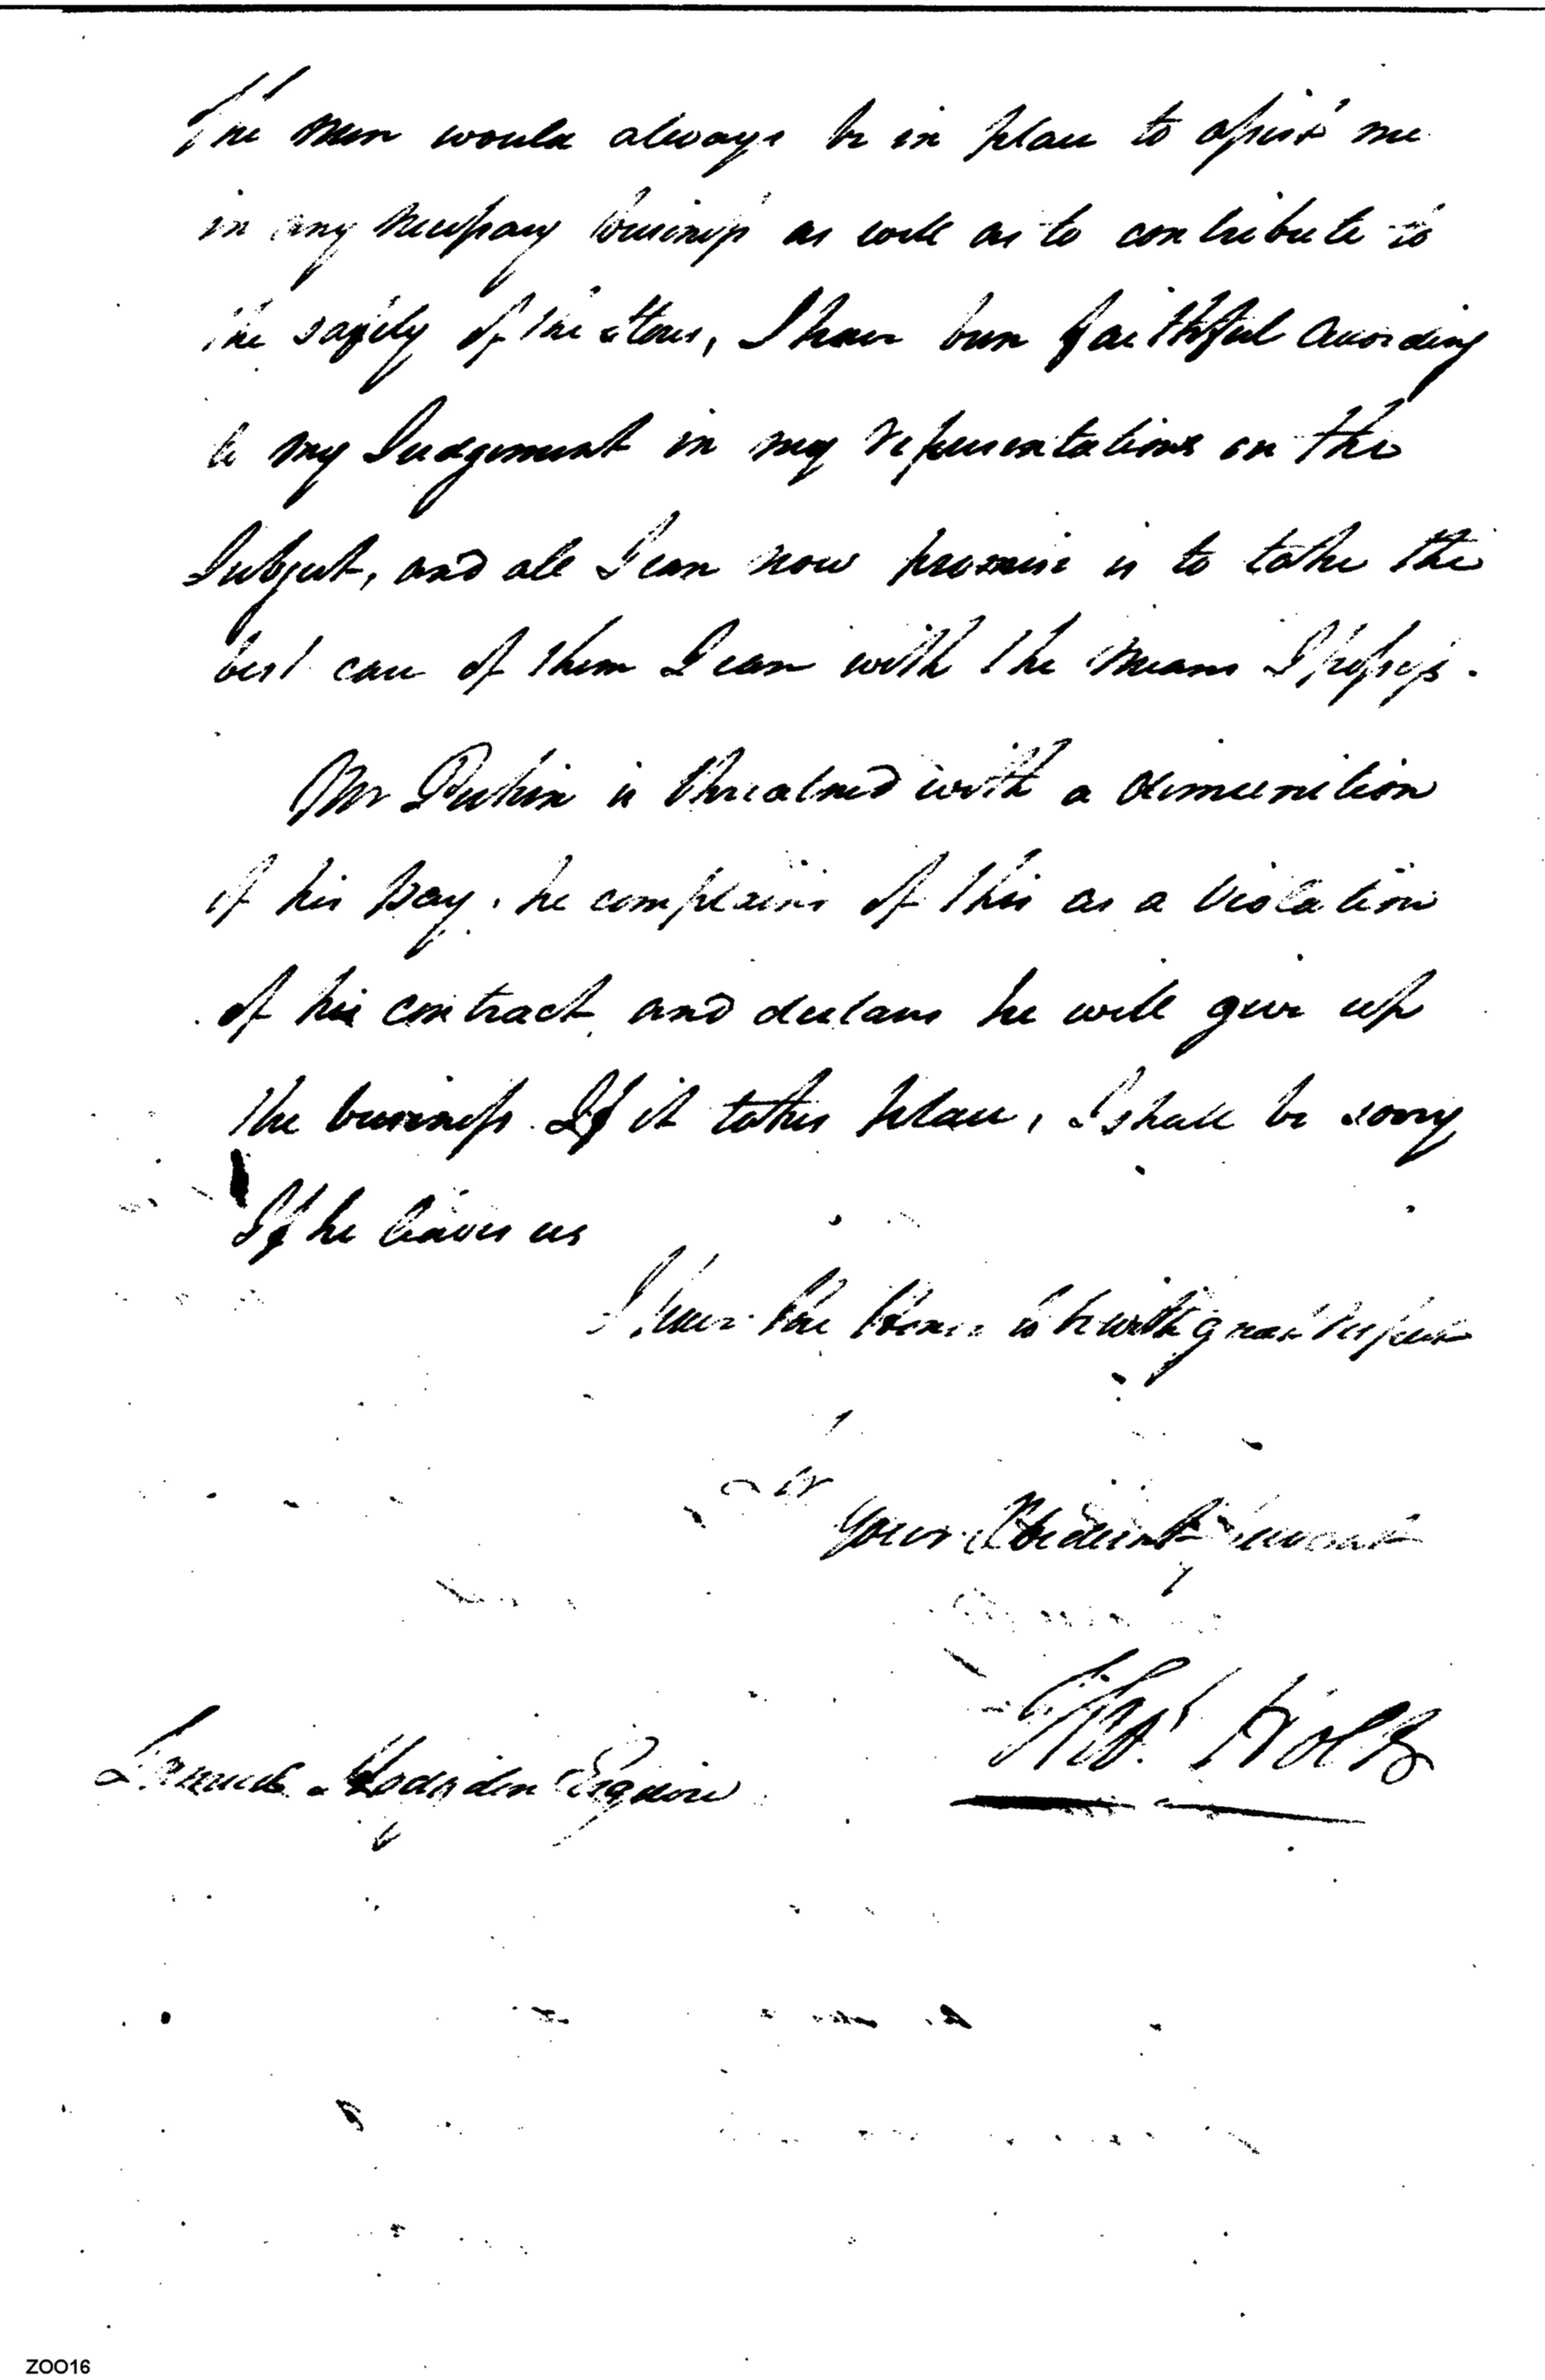 The men would always be in place to assist me
in any necessary business as well as to contribute to
the safety of the stores, I have been faithful according
to my Judgement in my representations on the
Subject, and all I can now promise is to take the
best care of them I can with the means I possess.
Mr is threatned with a dimunition
of his pay, he complains of this as a violation
of his contract and declares he will give up
the business. If it takes place, I shall be sorry
If he leaves us
I have the Honor to be with great Respect
Sir
Your Obedient Servant
Thos. Holt
Samuel Hodsden Esquire
ZOO16